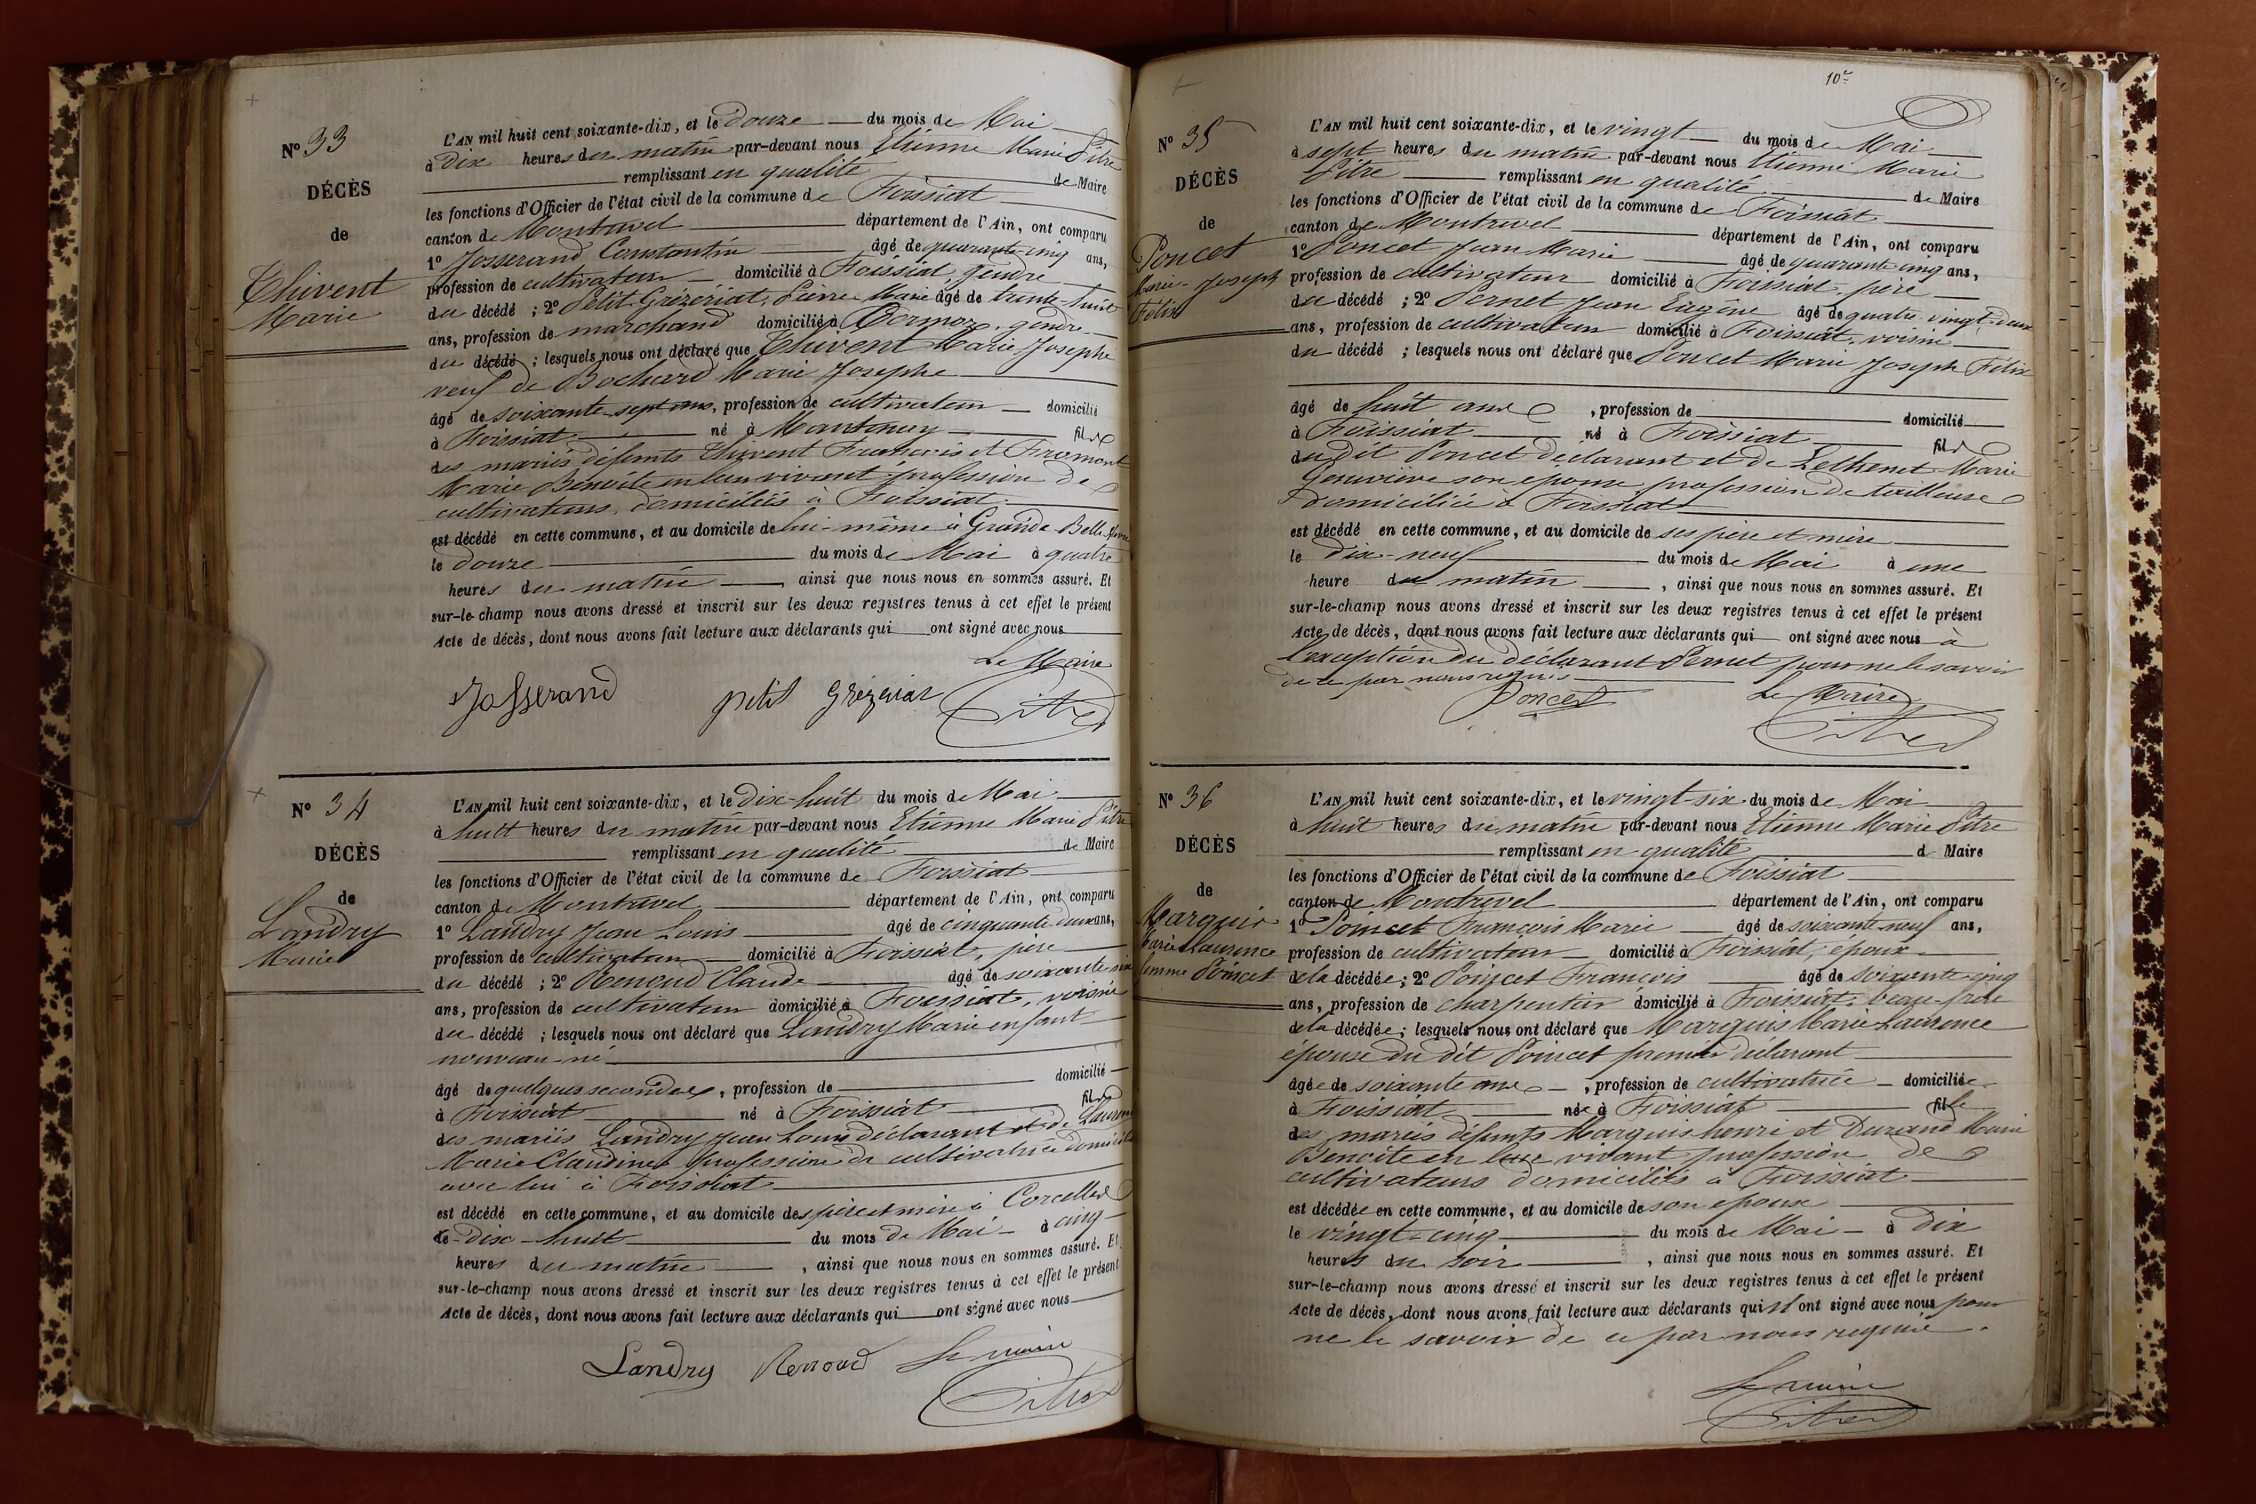 N° 33
DÉCÈS
de
Thivent
Marie
L'AN mil huit cent soixante-dix, et le douze du mois de Mai
à dix heures du matin par-devant nous Etienne Marie Pitre
remplissant en qualité de Maire
les fonctions d'Officier de l'état civil de la commune de Foissiat
canton de Montrevel département de l'Ain, ont comparu
1° Josserand Constantin âgé de quarante cinq ans,
profession de cultivateur domicilié à Foissiat, gendre
du décédé ; 2° Petit-Grézériat, Pierre Marie âgé de trente huit
ans, profession de marchand domicilié à Cormoz, gendre
du décédé ; lesquels nous ont déclaré que Thivent Marie Josephe
veuf de Bochard Marie Josephe
âgé de soixante sept ans, profession de cultivateur domicilié
à Foissiat né à Mantenay fils
des mariés défunts Thivent François et Fromont
Marie Benoite en leur vivant profession de
cultivateurs domiciliés à Foissiat
est décédé en cette commune, et au domicile de lui-même à Grande Belle
le douze du mois de Mai à quatre
heures du matin ainsi que nous nous en sommes assuré. Et
sur-le-champ nous avons dressé et inscrit sur les deux registres tenus à cet effet le présent
Acte de décès, dont nous avons fait lecture aux déclarants qui ont signé avec nous
Le Maire
Josserand petit Grézériat Pitre
N° 34
DÉCÈS
de
Landry
Marie
L'AN mil huit cent soixante-dix, et le dix-huit du mois de Mai
à huit heures du matin par-devant nous Etienne Marie Pitre
remplissant en qualité de Maire
les fonctions d'Officier de l'état civil de la commune de Foissiat
canton de Montrevel département de l'Ain, ont comparu
1° Landry Jean Louis âgé de cinquante deux ans,
profession de cultivateur domicilié à Foissiat, père
du décédé ; 2° Renoud Claude âgé de soixante six
ans, profession de cultivateur domicilié à Foissiat, voisin
du décédé ; lesquels nous ont déclaré que Landry Marie enfant
nouveau-né
âgé de quelques secondes, profession de domicilié
à Foissiat né à Foissiat fils
des mariés Landry Jean Louis déclarant et de
Marie Claudine profession de cultivatrice
avec lui à Foissiat
est décédé en cette commune, et au domicile des père et mère à Corcelles
le dix-huit du mois de Mai à cinq
heures du matin, ainsi que nous nous en sommes assuré. Et
sur-le-champ nous avons dressé et inscrit sur les deux registres tenus à cet effet le présent
Acte de décès, dont nous avons fait lecture aux déclarants qui ont signé avec nous
Landry Renoud Le maire
Pitre
10e
N° 35
DÉCÈS
de
Poncet
Marie-Joseph
Félix
L'AN mil huit cent soixante-dix, et le vingt du mois de Mai
à sept heures du matin par-devant nous Etienne Marie
Pitre remplissant en qualité de Maire
les fonctions d'Officier de l'état civil de la commune de Foissiat
canton de Montrevel département de l'Ain, ont comparu
1° Poncet Jean Marie âgé de quarante cinq ans,
profession de cultivateur domicilié à Foissiat, père
du décédé ; 2° Pernet Jean Eugène âgé de quatre-vingt-deux
ans, profession de cultivateur domicilié à Foissiat, voisin
du décédé ; lesquels nous ont déclaré que Poncet Marie Joseph Félix
âgé de huit ans, profession de domicilié
à Foissiat né à Foissiat fils
du dit Poncet déclarant et de Lethenet Marie
Geneviève son épouse, profession de tailleuse
domiciliée à Foissiat
est décédé en cette commune, et au domicile de ses père et mère
le dix-neuf du mois de Mai à une
heure du matin, ainsi que nous nous en sommes assuré. Et
sur-le-champ nous avons dressé et inscrit sur les deux registres tenus à cet effet le présent
Acte de décès, dont nous avons fait lecture aux déclarants qui ont signé avec nous à
l'exception du déclarant Pernet pour ne le savoir
de ce par nous requis
Poncet Le Maire
Pitre
N° 36
DÉCÈS
de
Marquis
Marie Laurence
femme Poincet
L'AN mil huit cent soixante-dix, et le vingt-six du mois de Mai
à huit heures du matin par-devant nous Etienne Marie Pitre
remplissant en qualité d Maire
les fonctions d'Officier de l'état civil de la commune de Foissiat
canton de Montrevel département de l'Ain, ont comparu
1° Poincet François Marie âgé de soixante neuf ans,
profession de cultivateur domicilié à Foissiat, époux
de la décédée ; 2° Poincet François âgé de soixante-cinq
ans, profession de charpentier domicilié à Foissiat, beau-frère
de la décédée ; lesquels nous ont déclaré que Marquis Marie Laurence
épouse du dit Poincet premier déclarant
âgée de soixante ans, profession de cultivatrice domiciliée
à Foissiat née à Foissiat fille
des mariés défunts Marquis henri et Durand Marie
Benoite en leur vivant profession de
cultivateurs domiciliés à Foissiat
est décédée en cette commune, et au domicile de son époux
le vingt-cinq du mois de Mai à dix
heures du soir, ainsi que nous nous en sommes assuré. Et
sur-le-champ nous avons dressé et inscrit sur les deux registres tenus à cet effet le présent
Acte de décès, dont nous avons fait lecture aux déclarants qui n'ont signé avec nous pour
ne le savoir de ce par nous requis.
Le maire
Pitre